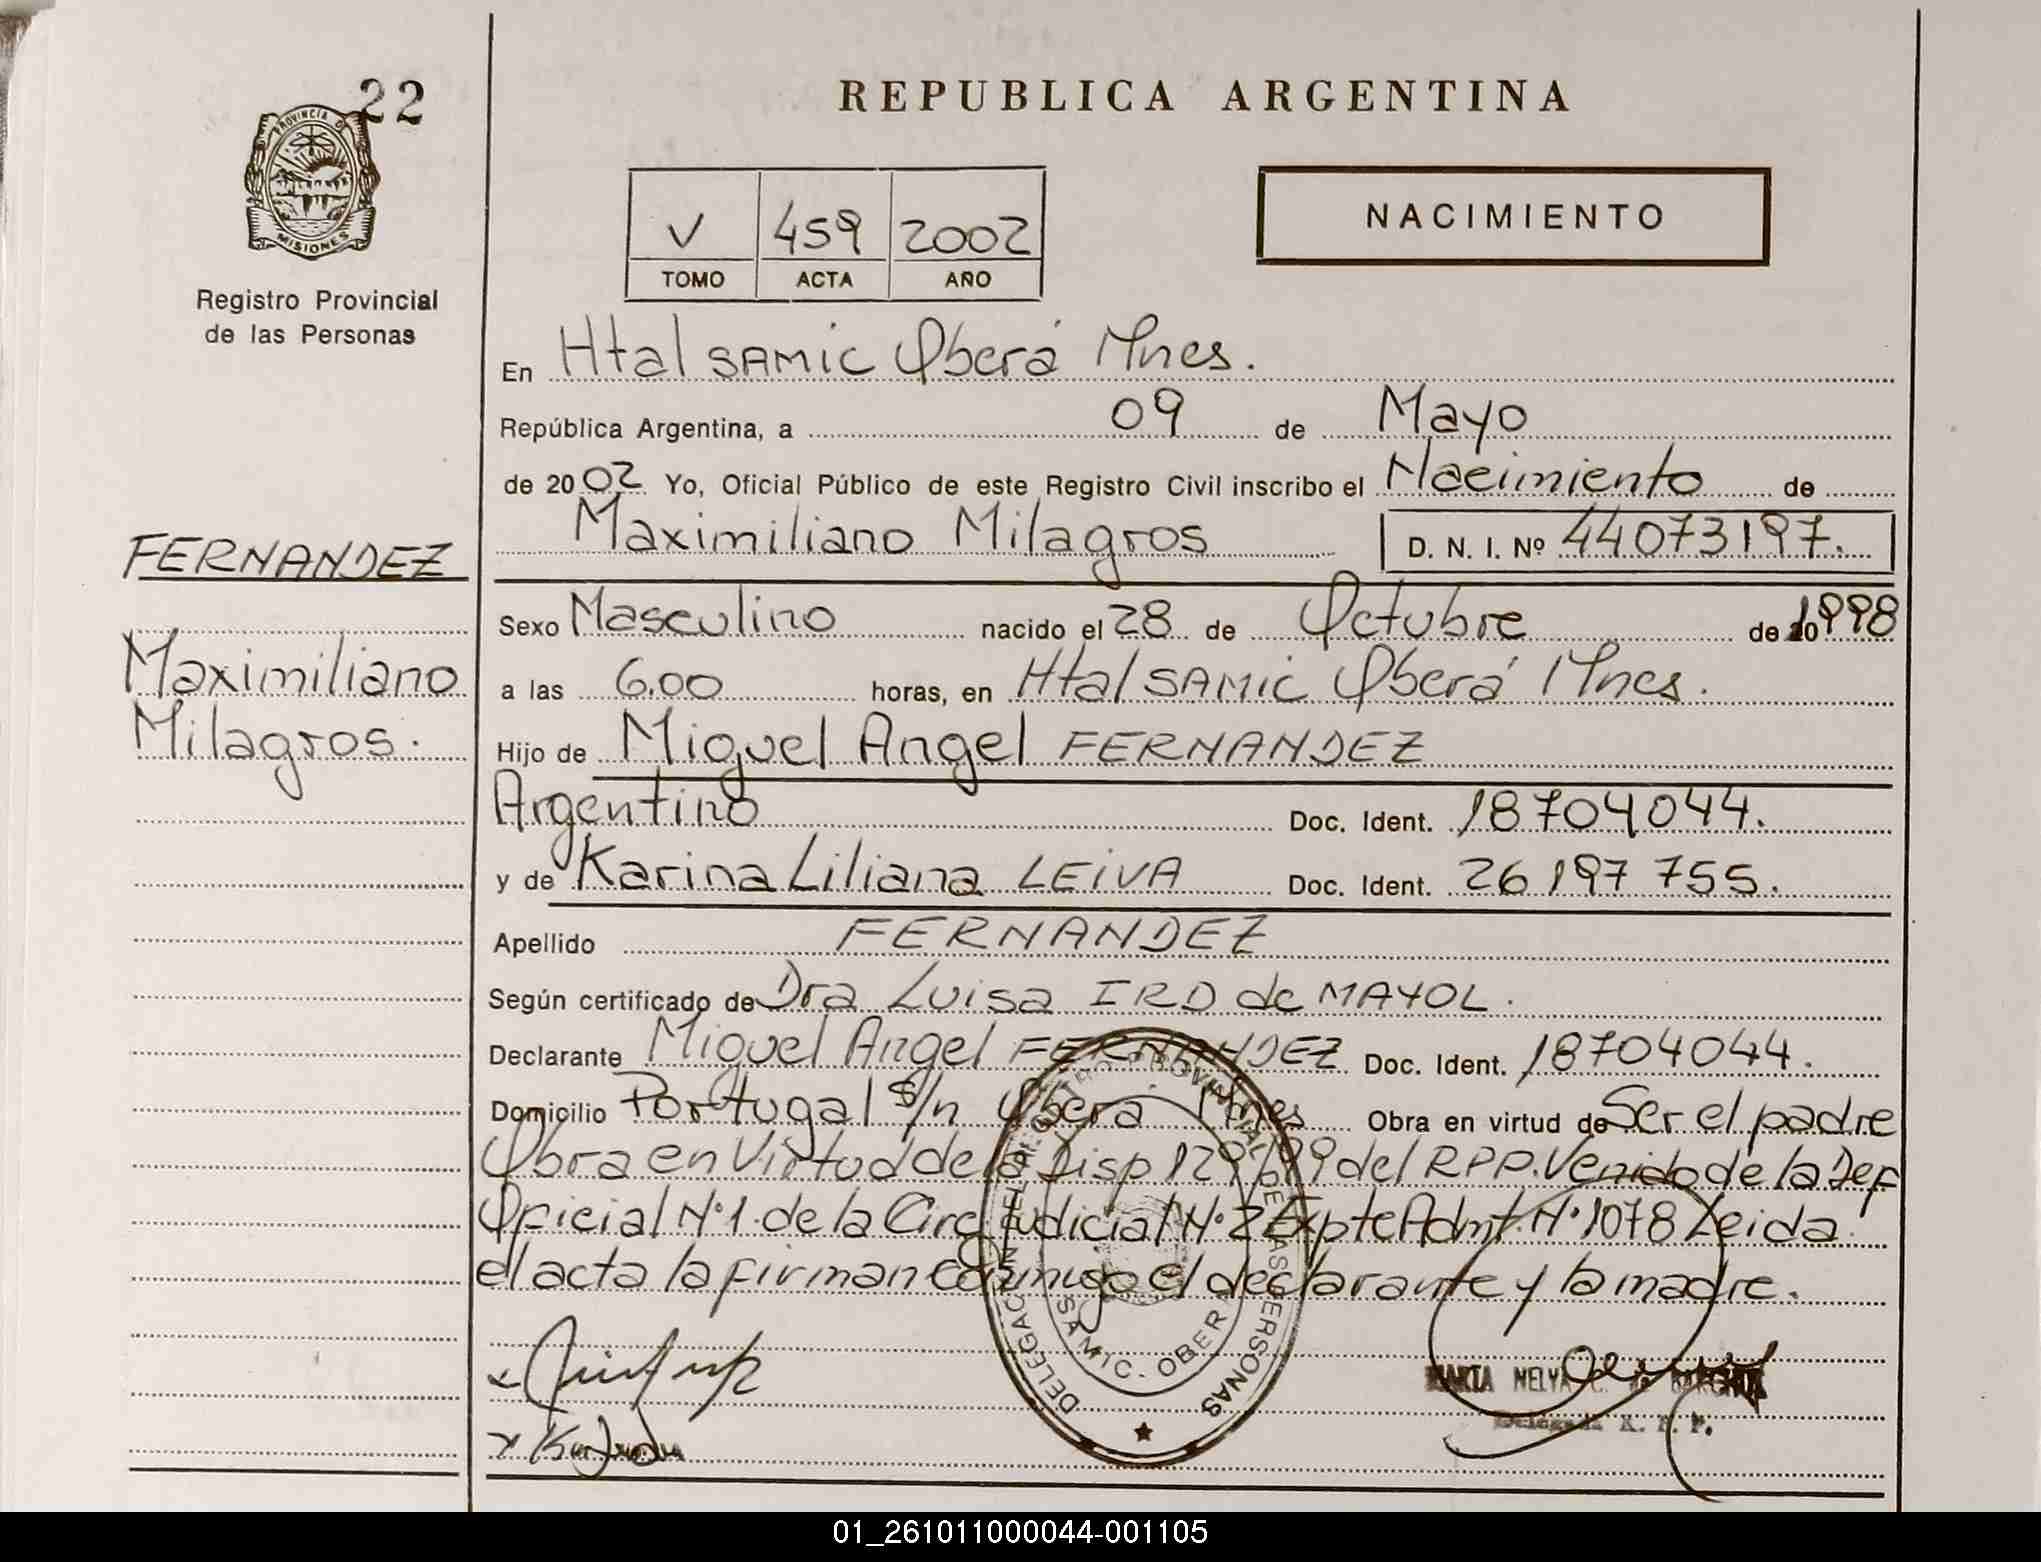 22
REPUBLICA ARGENTINA
PROVINCIA D
MISIONES
Registro Provincial
de las Personas
V 459 2002
TOMO ACTA AÑO
NACIMIENTO
En Htal SAMIC Oberá Mnes.
República Argentina, a 09 de Mayo
de 2002 Yo, Oficial Público de este Registro Civil inscribo el Nacimiento de
Maximiliano Milagros D. N. I. Nº 44073197.
FERNANDEZ
Maximiliano
Milagros.
Sexo Masculino nacido el 28 de Octubre de 1998
a las 6.00 horas, en Htal SAMIC Oberá Mnes.
Hijo de Miguel Angel FERNANDEZ
Argentino Doc. Ident. 18704044.
y de Karina Liliana LEIVA Doc. Ident. 26197755.
Apellido FERNANDEZ
Según certificado de Dra Luisa IRD de MAYOL.
Declarante Miguel Angel FERNANDEZ Doc. Ident. 18704044.
Domicilio Portugal s/n Oberá Mnes Obra en virtud de Ser el padre
Obra en Virtud de la Disp 129/99 del RPP. Venido de la Def
Oficial N°1 de la Circ Judicial N°2 Expte Admt. N°1078 Leida
el acta la firman conmigo el declarante y la madre.
REGISTRO PROVINCIAL DE LAS PERSONAS
DELEGACION
SAMIC. OBERA
MARTA NELVA C. de
Delegada R. P. P.
01_261011000044-001105